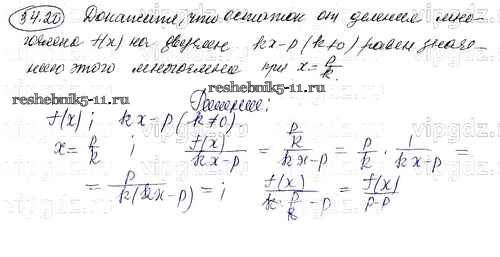 34.20 Докажите, что остаток от деления мно-
гочлена f(x) на двучлен kx-p (k≠0) равен значе-
нию этого многочлена при x = p/k.
reshebnik5-11.ru
Решение:
reshebnik5-11.ru
f(x) ; kx-p (k≠0).
x = p/k ; f(x)/(kx-p) = (p/k)/(kx-p) = p/k · 1/(kx-p) =
= p/(k(kx-p)) = ; f(x)/(k·p/k - p) = f(x)/(p-p)